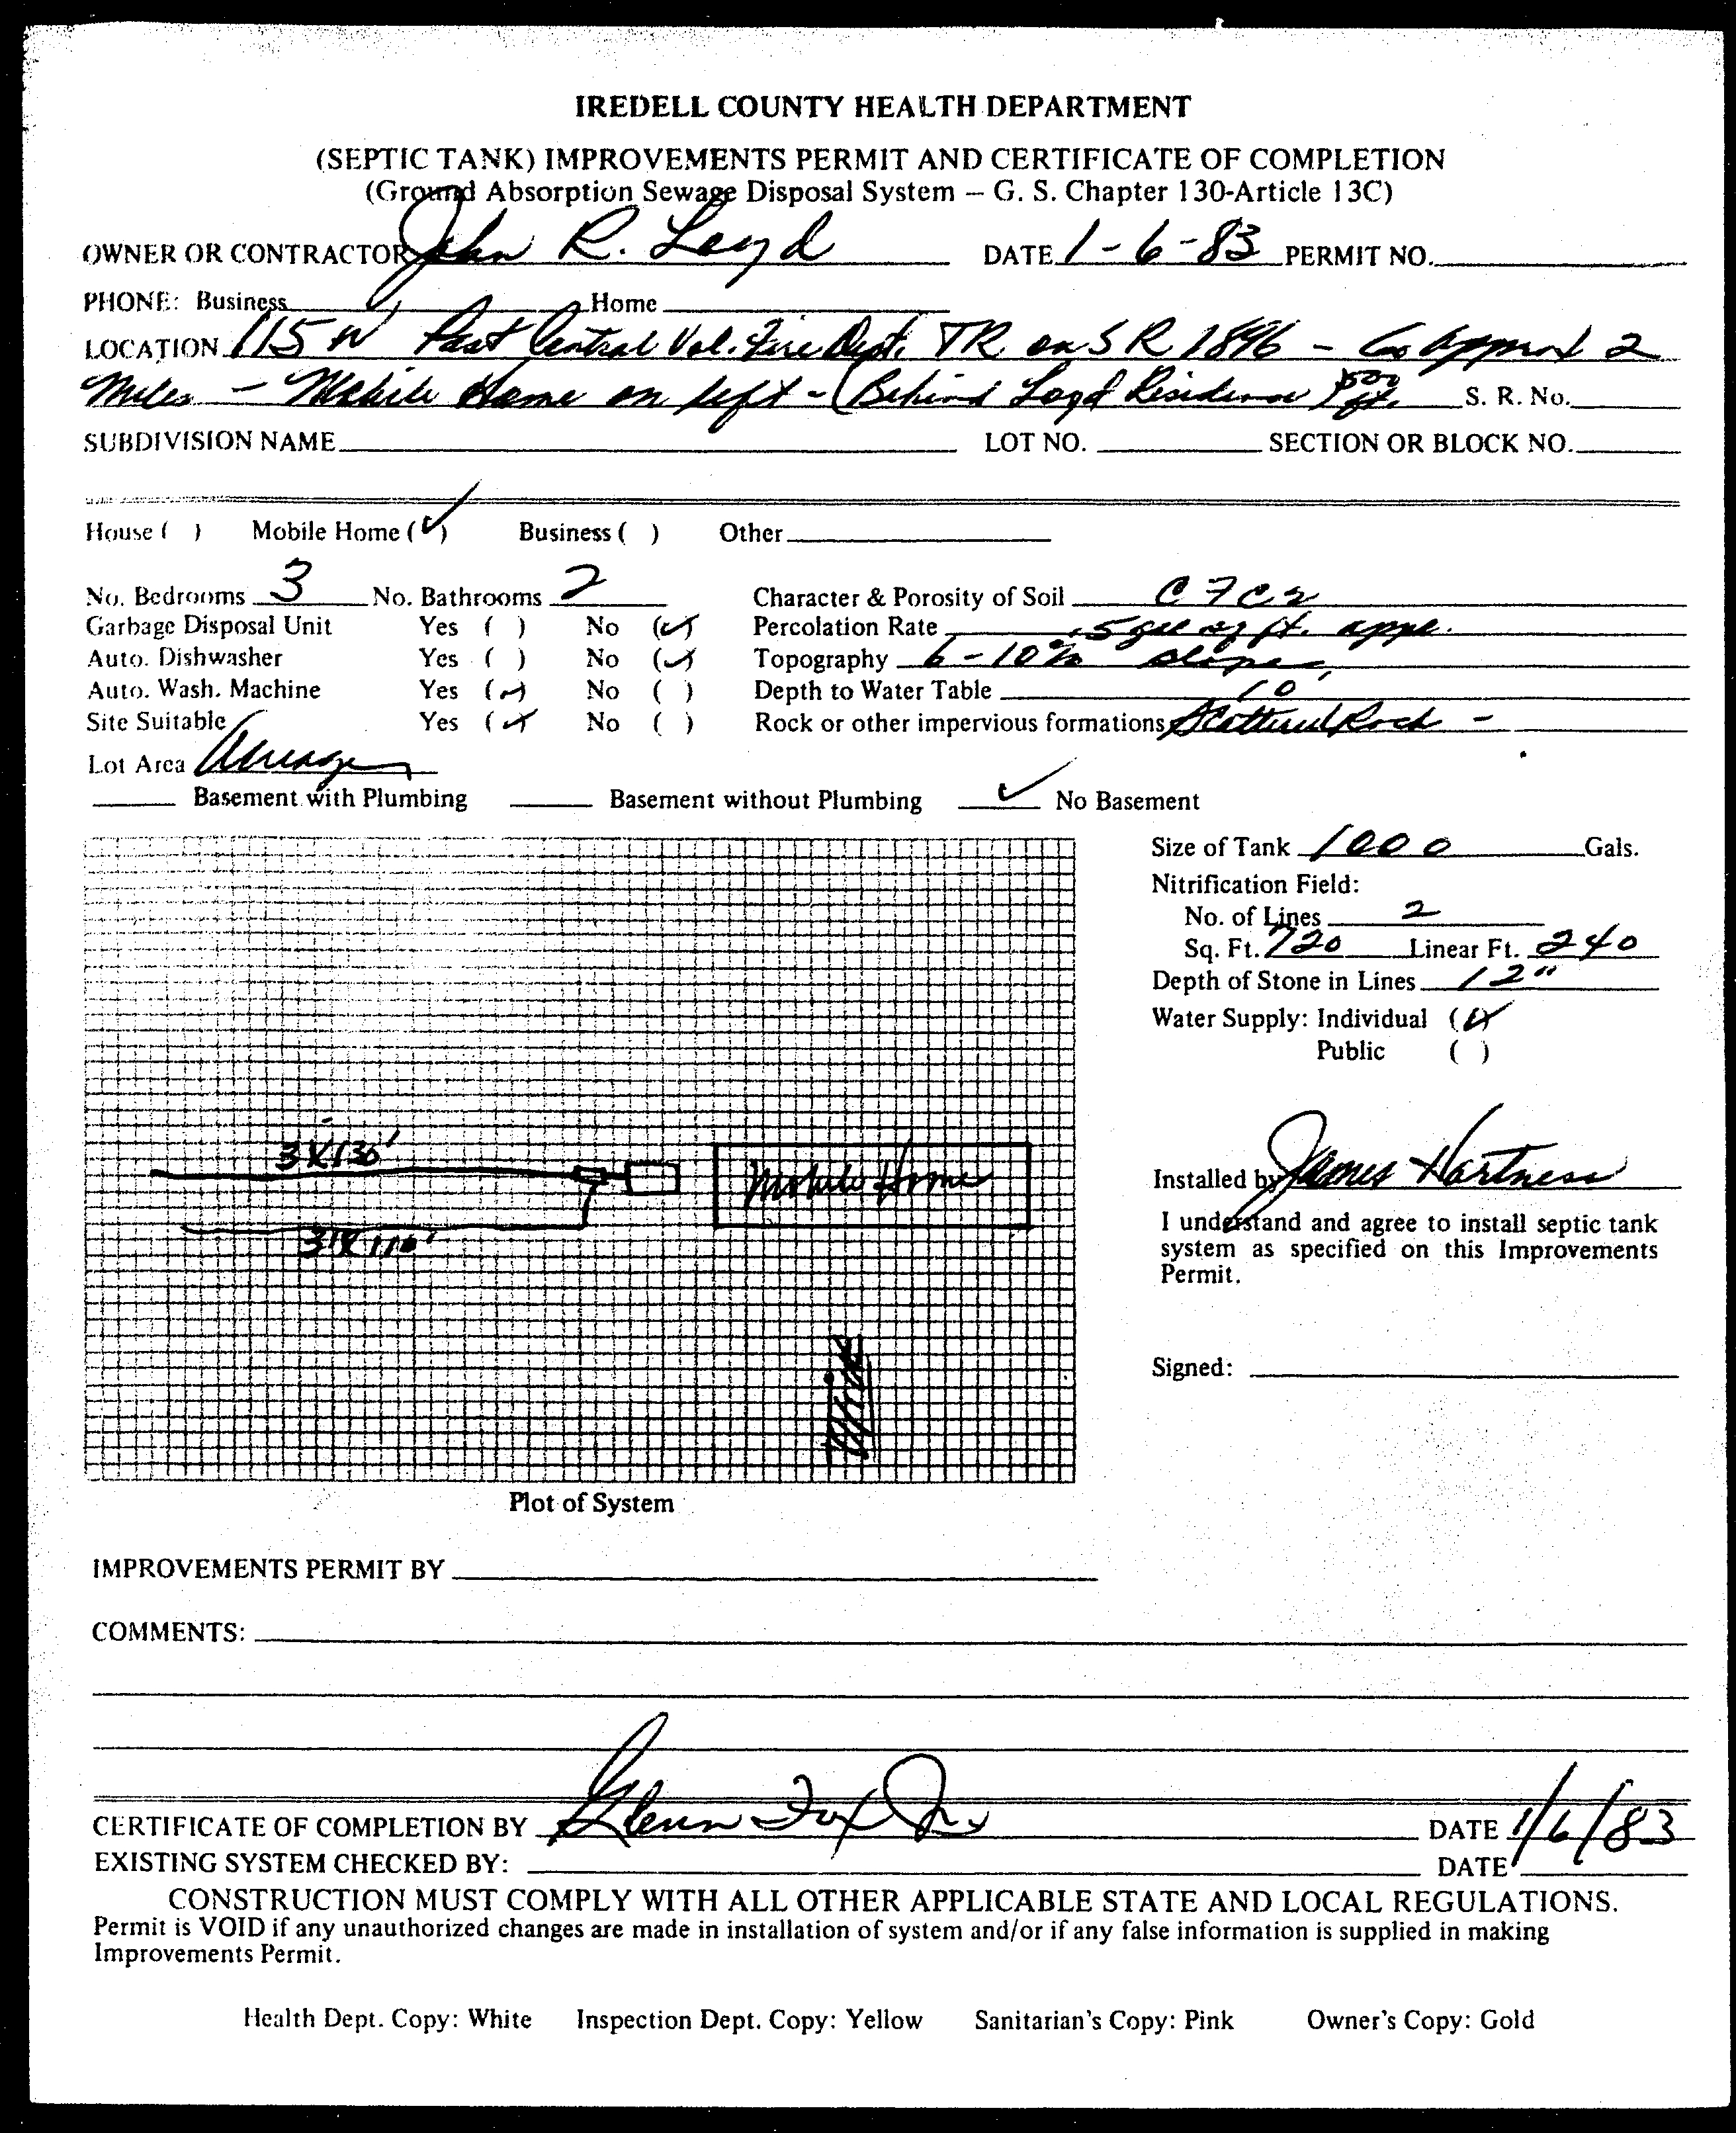 IREDELL COUNTY HEALTH DEPARTMENT
(SEPTIC TANK) IMPROVEMENTS PERMIT AND CERTIFICATE OF COMPLETION
(Ground Absorption Sewage Disposal System – G. S. Chapter 130-Article 13C)
OWNER OR CONTRACTOR John R. Loyd DATE 1-6-83 PERMIT NO.
PHONE: Business Home
LOCATION 115 N Past Central Vol. Fire Dept. TR on SR 1896 - Go approx 2
miles - Mobile Home on left - (Behind Loyd Residence) 500 ft. S. R. No.
SUBDIVISION NAME LOT NO. SECTION OR BLOCK NO.
House ( ) Mobile Home (✓) Business ( ) Other
No. Bedrooms 3 No. Bathrooms 2 Character & Porosity of Soil
Garbage Disposal Unit Yes ( ) No (✓) Percolation Rate .5 gal sq ft. appl.
Auto. Dishwasher Yes ( ) No (✓) Topography 6-10% slope
Auto. Wash. Machine Yes (✓) No ( ) Depth to Water Table 10'
Site Suitable Yes (✓) No ( ) Rock or other impervious formations Scattered Rock -
Lot Area Acreage
Basement with Plumbing Basement without Plumbing ✓ No Basement
Size of Tank 1000 Gals.
Nitrification Field:
No. of Lines 2
Sq. Ft. 720 Linear Ft. 240
Depth of Stone in Lines 12"
Water Supply: Individual (✓)
Public ( )
3 X 130'
Mobile Home
3' X 110'
Installed by James Hartness
I understand and agree to install septic tank
system as specified on this Improvements
Permit.
Signed:
Plot of System
IMPROVEMENTS PERMIT BY
COMMENTS:
CERTIFICATE OF COMPLETION BY Glenn Fox Jr. DATE 1/6/83
EXISTING SYSTEM CHECKED BY: DATE
CONSTRUCTION MUST COMPLY WITH ALL OTHER APPLICABLE STATE AND LOCAL REGULATIONS.
Permit is VOID if any unauthorized changes are made in installation of system and/or if any false information is supplied in making
Improvements Permit.
Health Dept. Copy: White Inspection Dept. Copy: Yellow Sanitarian's Copy: Pink Owner's Copy: Gold